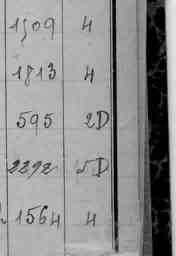 1509 4
1813 4
595 2D
2292 5D
1564 4